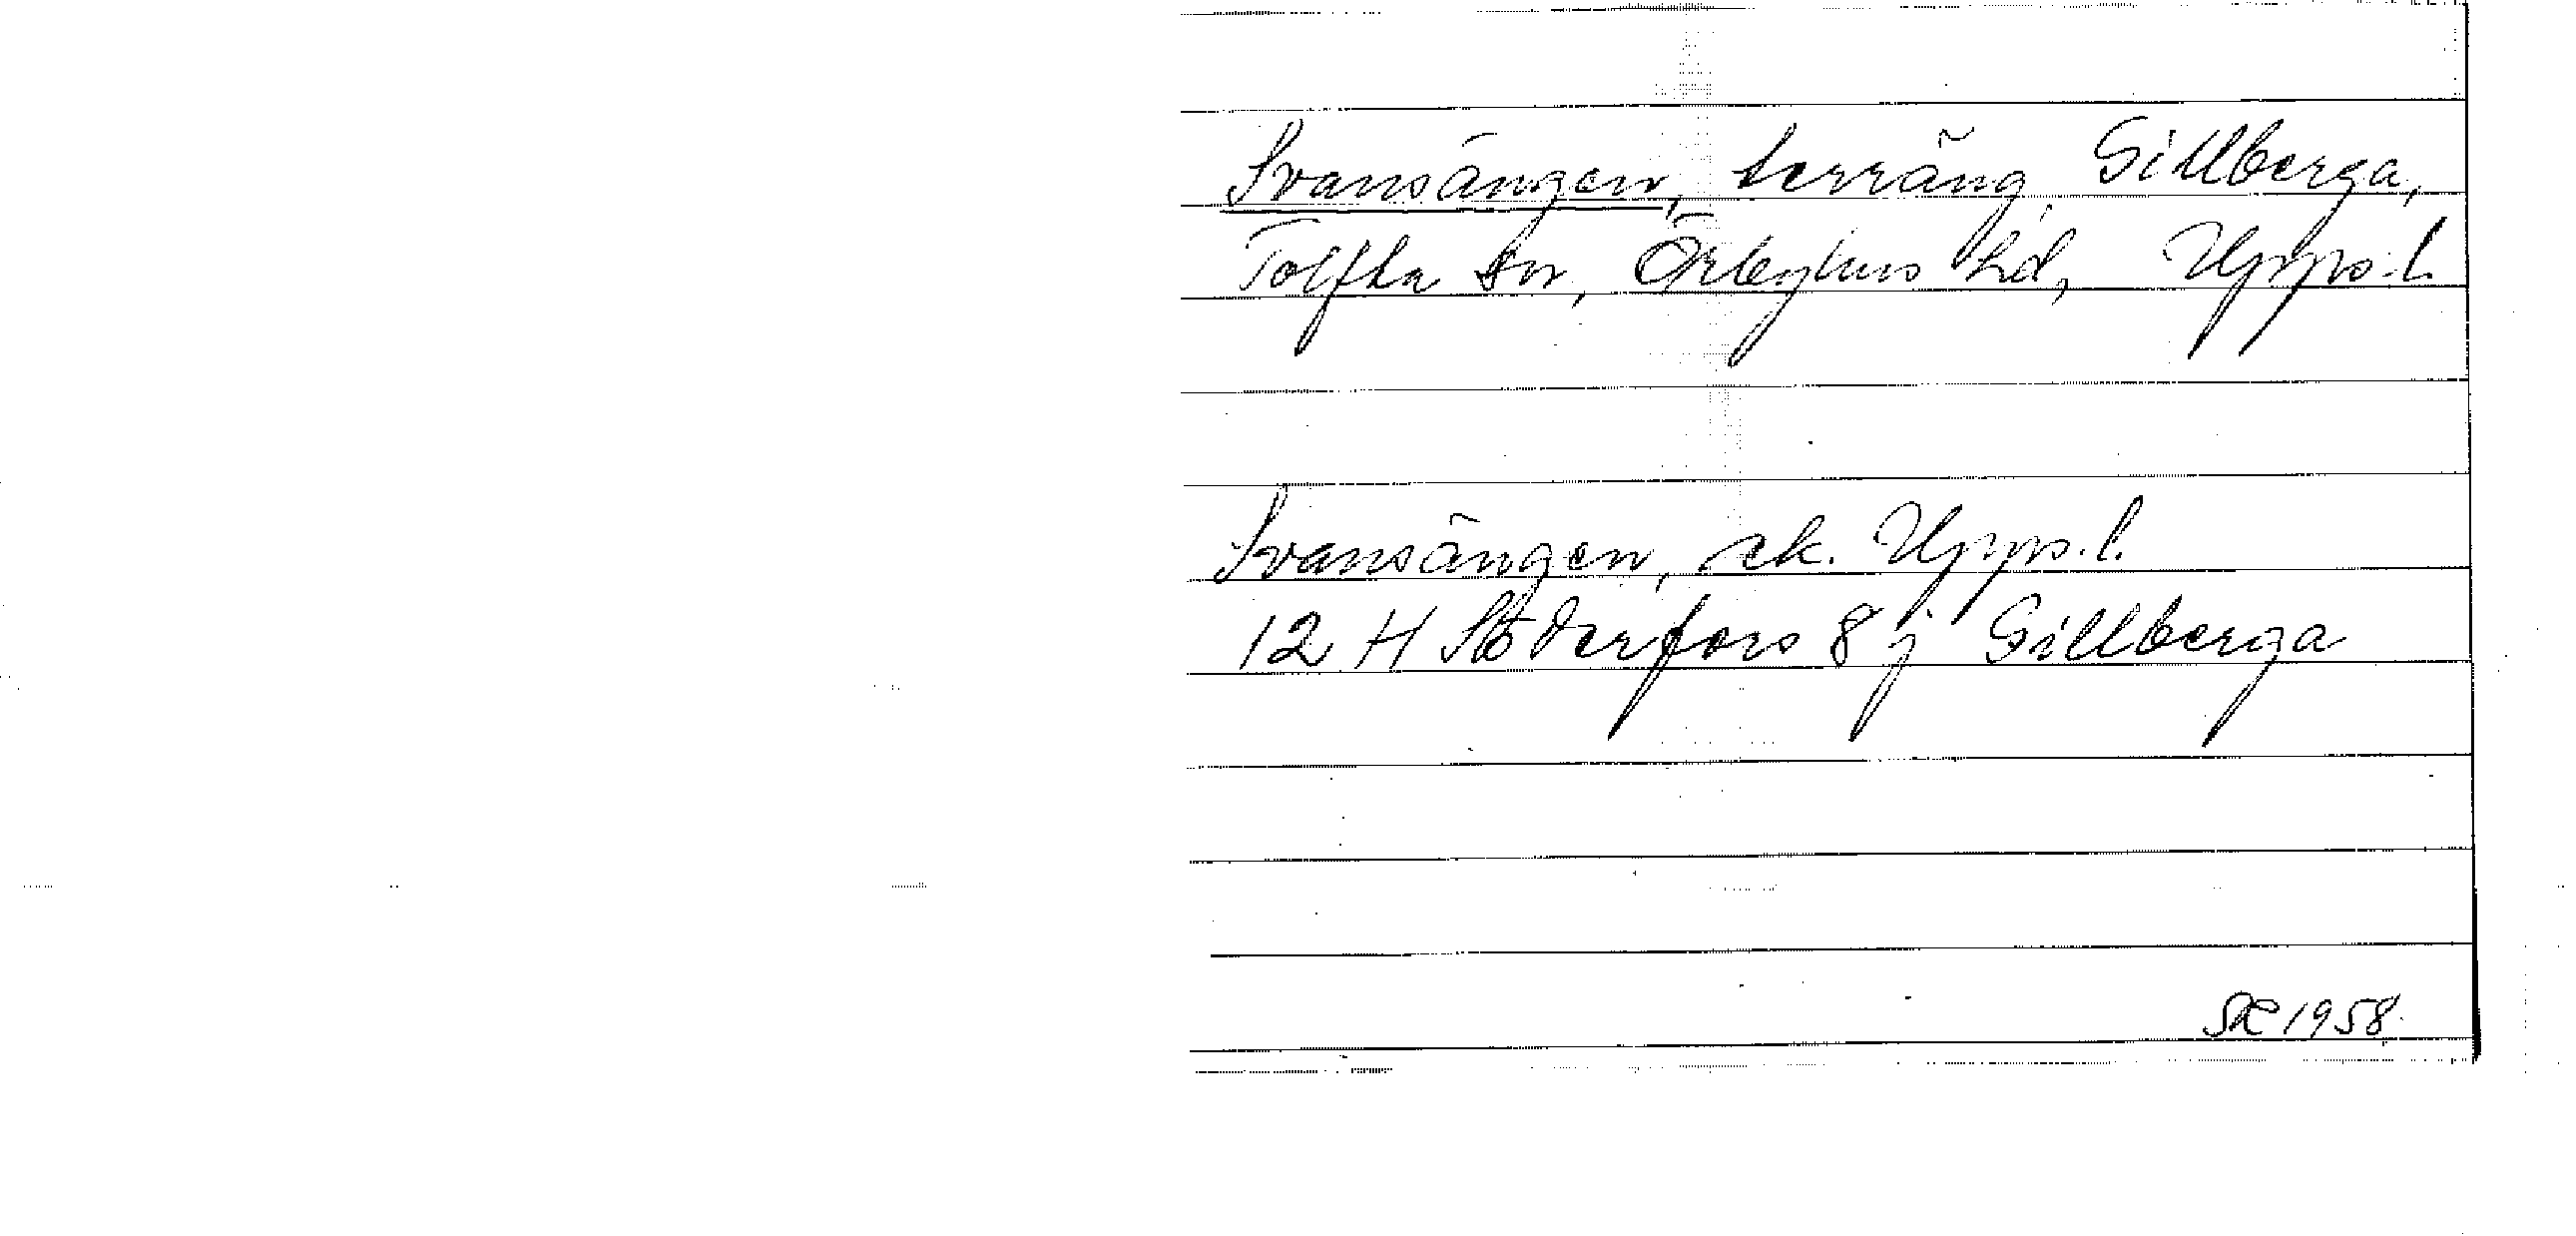 Svansängen, terräng, Gillberga,
Tolfta sn, Örbyhus hd, Upps. l.
Svansängen, ek. Upps. l.
12 H Söderfors 8 j Gillberga
1958